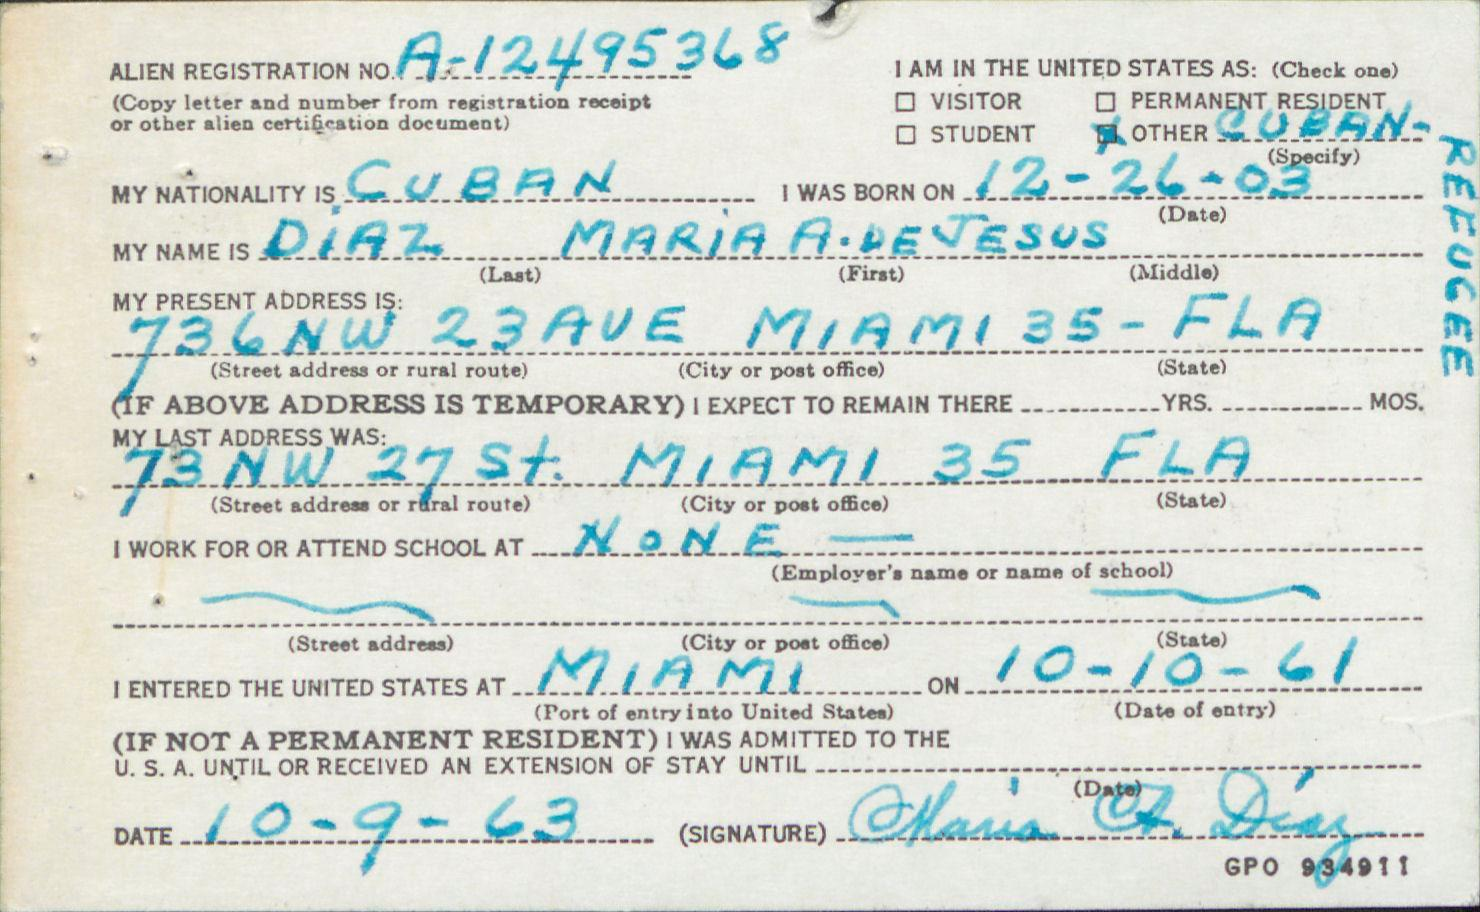 ALIEN REGISTRATION NO. A-12495368
(Copy letter and number from registration receipt
or other alien certification document)
I AM IN THE UNITED STATES AS: (Check one)
☐ VISITOR ☐ PERMANENT RESIDENT
☐ STUDENT ☒ OTHER CUBAN-
REFUGEE
(Specify)
MY NATIONALITY IS CUBAN I WAS BORN ON 12-26-03
(Date)
MY NAME IS DiAZ MARiA A. DE JESUS
(Last) (First) (Middle)
MY PRESENT ADDRESS IS:
736 NW 23 AVE MIAMI 35 - FLA
(Street address or rural route) (City or post office) (State)
(IF ABOVE ADDRESS IS TEMPORARY) I EXPECT TO REMAIN THERE YRS. MOS.
MY LAST ADDRESS WAS:
73 NW 27 St. MIAMI 35 FLA
(Street address or rural route) (City or post office) (State)
I WORK FOR OR ATTEND SCHOOL AT NoNE —
(Employer's name or name of school)
(Street address) (City or post office) (State)
I ENTERED THE UNITED STATES AT MIAMI ON 10-10-61
(Port of entry into United States) (Date of entry)
(IF NOT A PERMANENT RESIDENT) I WAS ADMITTED TO THE
U. S. A. UNTIL OR RECEIVED AN EXTENSION OF STAY UNTIL
(Date)
DATE 10-9-63 (SIGNATURE) Maria A. Díaz
GPO 934911